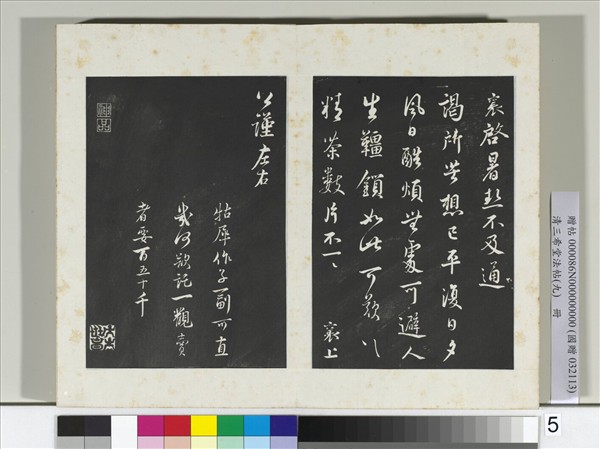 襄啓暑熱不及通
謁所苦想已平復日夕
風日酷煩無處可避人
生韁鎖如此可歎〻
精茶數片不一〻
襄上
公謹左右
牯犀作子一副可直
幾何欲託一觀賣
者要百五十千
贈帖 000086N000000000 (國贈 032113)
清三希堂法帖(九) 冊
5